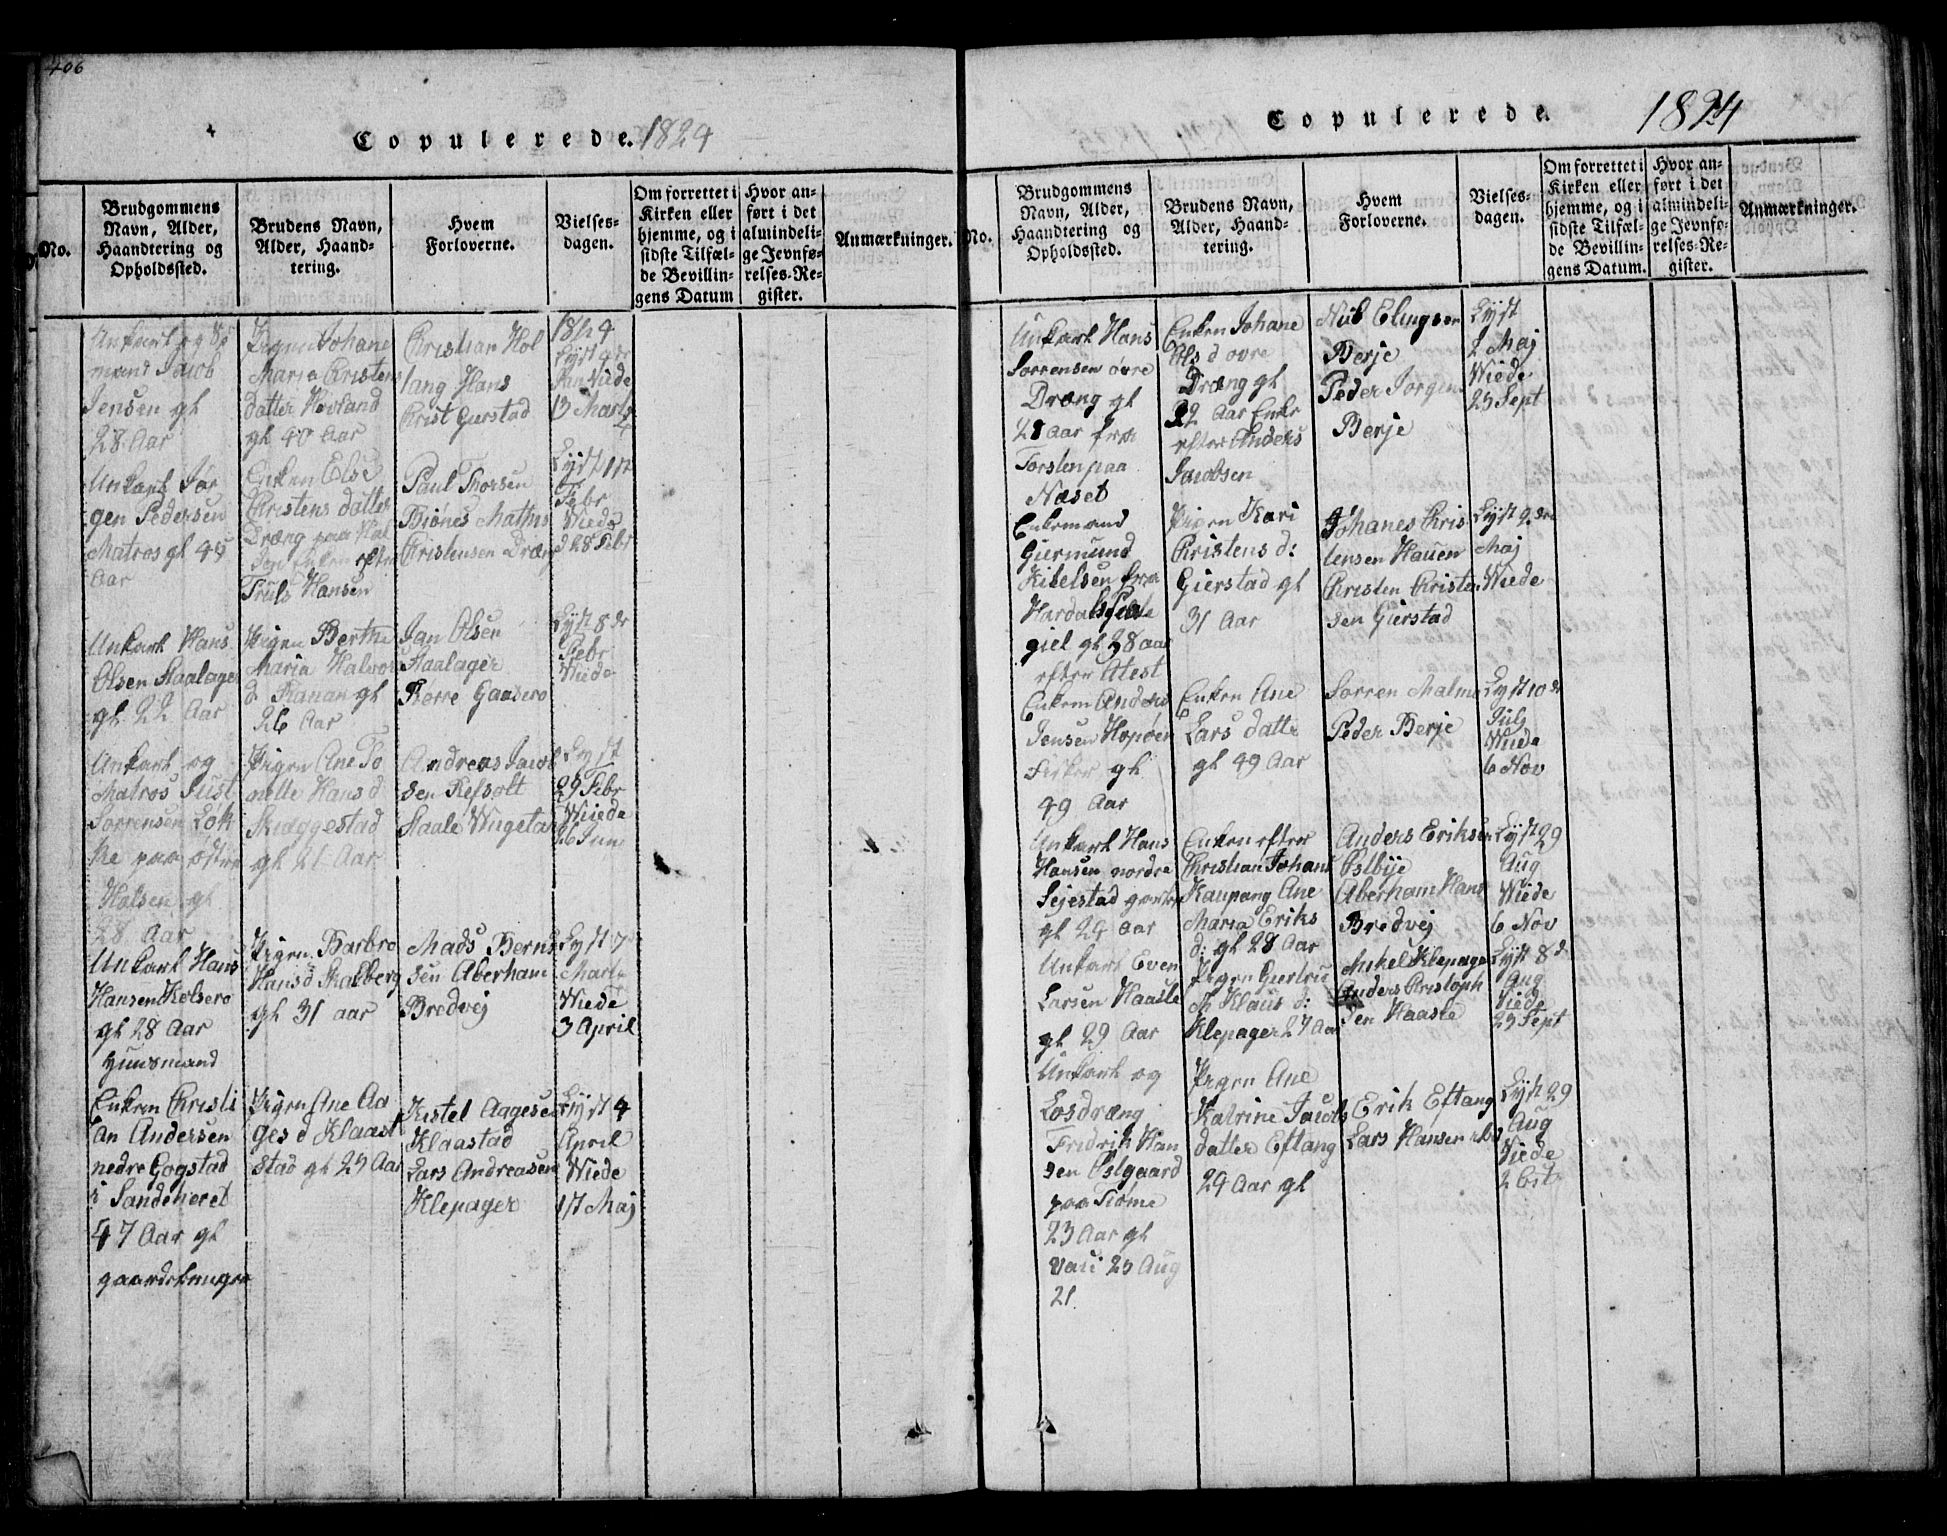 406
Copulerede. 1824
No.
Brudgommens
Navn, Alder,
Haandtering og
Opholdssted.
Brudens Navn,
Alder, Haand-
tering.
Hvem
Forloverne.
Vielses-
dagen.
Om forrettet i
Kirken eller
hjemme, og i
sidste Tilfæl-
de Bevillin-
gens Datum
Hvor an-
ført i det
almindeli-
ge Jevnfø-
relses-Re-
gister.
Anmærkninger.
Unkarl og
mand Jacob
Jensen gl
28 Aar
Pigen Johane
Maria Cristens
datter Hovland
gl 40 Aar
Christian Hol
lang Hans
Crist Gierstad
1824
Lyst 4de
Jan Viede
13 Marts
Unkarl Jør
gen Pedersen
Matros gl 45
Aar
Enken Else
Christens datter
Dræng paa Hol
den Enken efter
Truls Hansen
Paul Thorsen
Biønes Mathis
Christensen Dræng
Lyst 1st
Febr
Wiede
d 28 Febr
Unkarl Hans
Olsen Staalager
gl 22 Aar
Pigen Berthe
Maria Halvor
d Ranan gl
26 Aar
Jan Olsen
Staalager
Børre Gaasero
Lyst 8de
Febr
Wiede
Unkarl og
Matros Just
Sørrensen Løk
ke paa østre
Halsen gl
28 Aar
Pigen Ane To
nette Hans d
Skiæggestad
gl 21 Aar
Andreas Jacob
sen Refsølt
Staale Wugetan
Lyst
29 Febr
Wiiede
26 Juni
Unkarl Hans
Hansen Kolsero
gl 28 Aar
Huusmand
Pigen Barbro
Hans d Skalberg
gl 31 aar
Mads Bernt
sen Aberham
Bredvej
Lyst 7
Marts
Wiede
3 April
Enkem Christi
an Andersen
nedre Gogstad
i Sandeheret
47 Aar gl
gaardebruger
Pigen Ane Aa
ges d Klaast
stad gl 25 Aar
Kistel Aagesen
Klaastad
Lars Andreasen
Klepager
Lyst 4
April
Wiede
17 Maj
Copulerede. 1824
No.
Brudgommens
Navn, Alder,
Haandtering og
Opholdssted.
Brudens Navn,
Alder, Haand-
tering.
Hvem
Forloverne.
Vielses-
dagen.
Om forrettet i
Kirken eller
hjemme, og i
sidste Tilfæl-
de Bevillin-
gens Datum.
Hvor an-
ført i det
almindeli-
ge Jevnfø-
relses-Re-
gister.
Anmærkninger.
Unkarl Hans
Sørrensen øvre
Dræng gl
28 aar fra
Torsten paa
Næset
Enken Johane
Ols d ovre
Dræng gl
32 Aar Enke
efter Anders
Jacobsen
Nub Elingsen
Berje
Peder Jorgen
Berje
Lyst
2 Maj
Wiede
25 Sept
Enkemand
Giermund
Kitelsen fra
giel gl 38 aar
efter Atest
Pigen Kari
Christens d:
Gierstad gl
31 Aar
Johanes Chris
tensen Hauen
Christen Christen
sen Gierstad
Lyst 9de
Maj
Wiede
Enkem Anders
Jensen Hopøen
Fisker gl
49 Aar
Enken Ane
Lars datter
gl 49 Aar
Sørren Malmø
Peder Berje
Lyst 10de
July
Wiede
6 Nov
Unkarl Hans
Hansen nordre
Sejestad
gl 29 aar
Enken efter
Christian Johans
Kaupang Ane
Maria Eriks
d: gl 28 Aar
Anders Eriksen
Østbye
Aberham Hans
Bredvej
Lyst 29
Aug
Wiede
6 Nov
Unkarl Even
Larsen Haaste
gl 29 Aar
Pigen Giertru
de Klaus d:
Klepager 27 Aar
Mikel Klepager
Anders Cristoph
sen Haaste
Lyst 8de
Aug
Viede
25 Sept
Unkarl og
Losdræng
Fridrik Han
sen Østgaard
paa Tiøme
23 Aar gl
Vaci 25 Aug
21
Pigen Ane
Katrine Jacobs
datter Eftang
29 Aar gl
Erik Eftang
Lars Hansen
Lyst 29
Aug
Viede
2 Oct